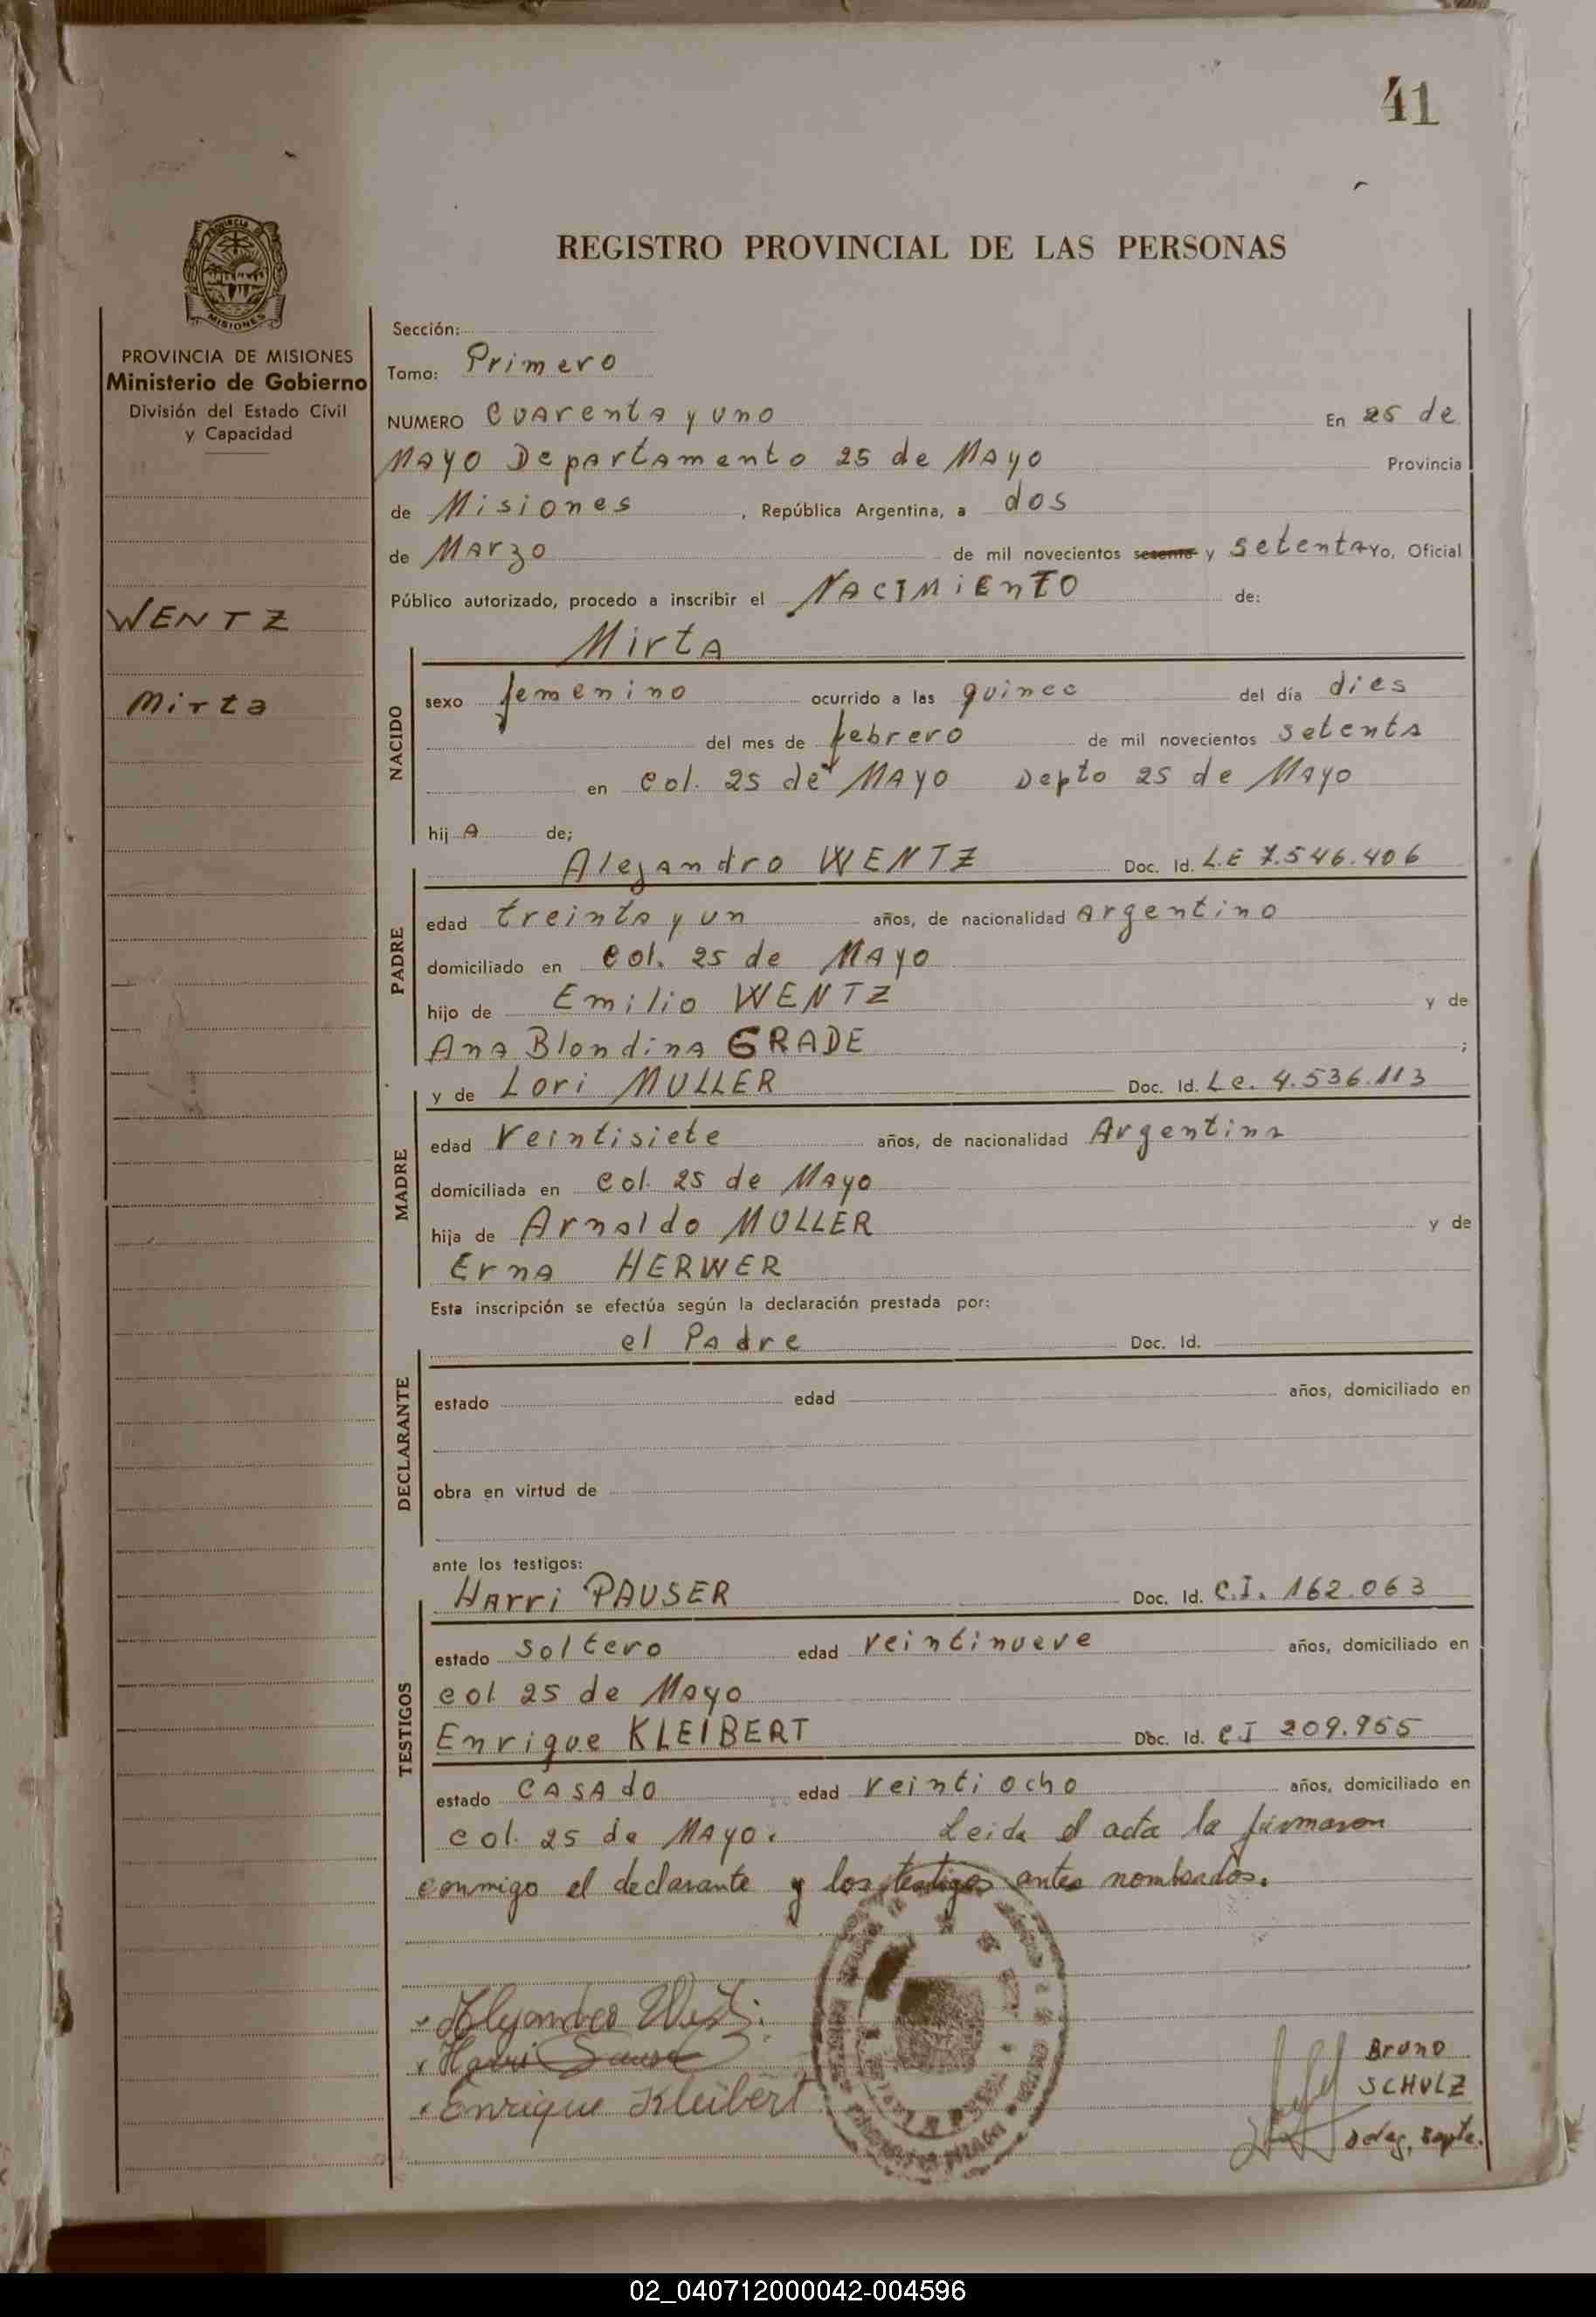 41
PROVINCIA DE MISIONES
Ministerio de Gobierno
División del Estado Civil
y Capacidad
WENTZ
Mirta
REGISTRO PROVINCIAL DE LAS PERSONAS
Sección:
Tomo: Primero
NUMERO Cuarenta y uno En 25 de
Mayo Departamento 25 de Mayo Provincia
de Misiones , República Argentina, a dos
de Marzo de mil novecientos sesenta y setenta Yo, Oficial
Público autorizado, procedo a inscribir el NACIMIENTO de:
Mirta
NACIDO
sexo femenino ocurrido a las quince del día dies
del mes de febrero de mil novecientos setenta
en col. 25 de Mayo Depto 25 de Mayo
hij A de;
Alejandro WENTZ Doc. Id. L.E 7.546.406
PADRE
edad treinta y un años, de nacionalidad Argentino
domiciliado en col. 25 de Mayo
hijo de Emilio WENTZ y de
Ana Blondina GRADE ;
y de Lori MULLER Doc. Id. L.C. 4.536.113
MADRE
edad veintisiete años, de nacionalidad Argentina
domiciliada en col. 25 de Mayo
hija de Arnaldo MULLER y de
Erna HERWER
Esta inscripción se efectúa según la declaración prestada por:
el Padre Doc. Id.
DECLARANTE
estado edad años, domiciliado en
obra en virtud de
ante los testigos:
Harri PAUSER Doc. Id. C.I. 162.063
TESTIGOS
estado soltero edad veintinueve años, domiciliado en
col 25 de Mayo
Enrique KLEIBERT Doc. Id. CI 209.955
estado CASAdo edad veintiocho años, domiciliado en
col. 25 de Mayo. Leida el acta la firmaron
conmigo el declarante y los testigos antes nombrados.
Alejandro Wentz
Harri
Enrique Kleibert
Bruno
SCHULZ
Deleg. Supte.
02_040712000042-004596